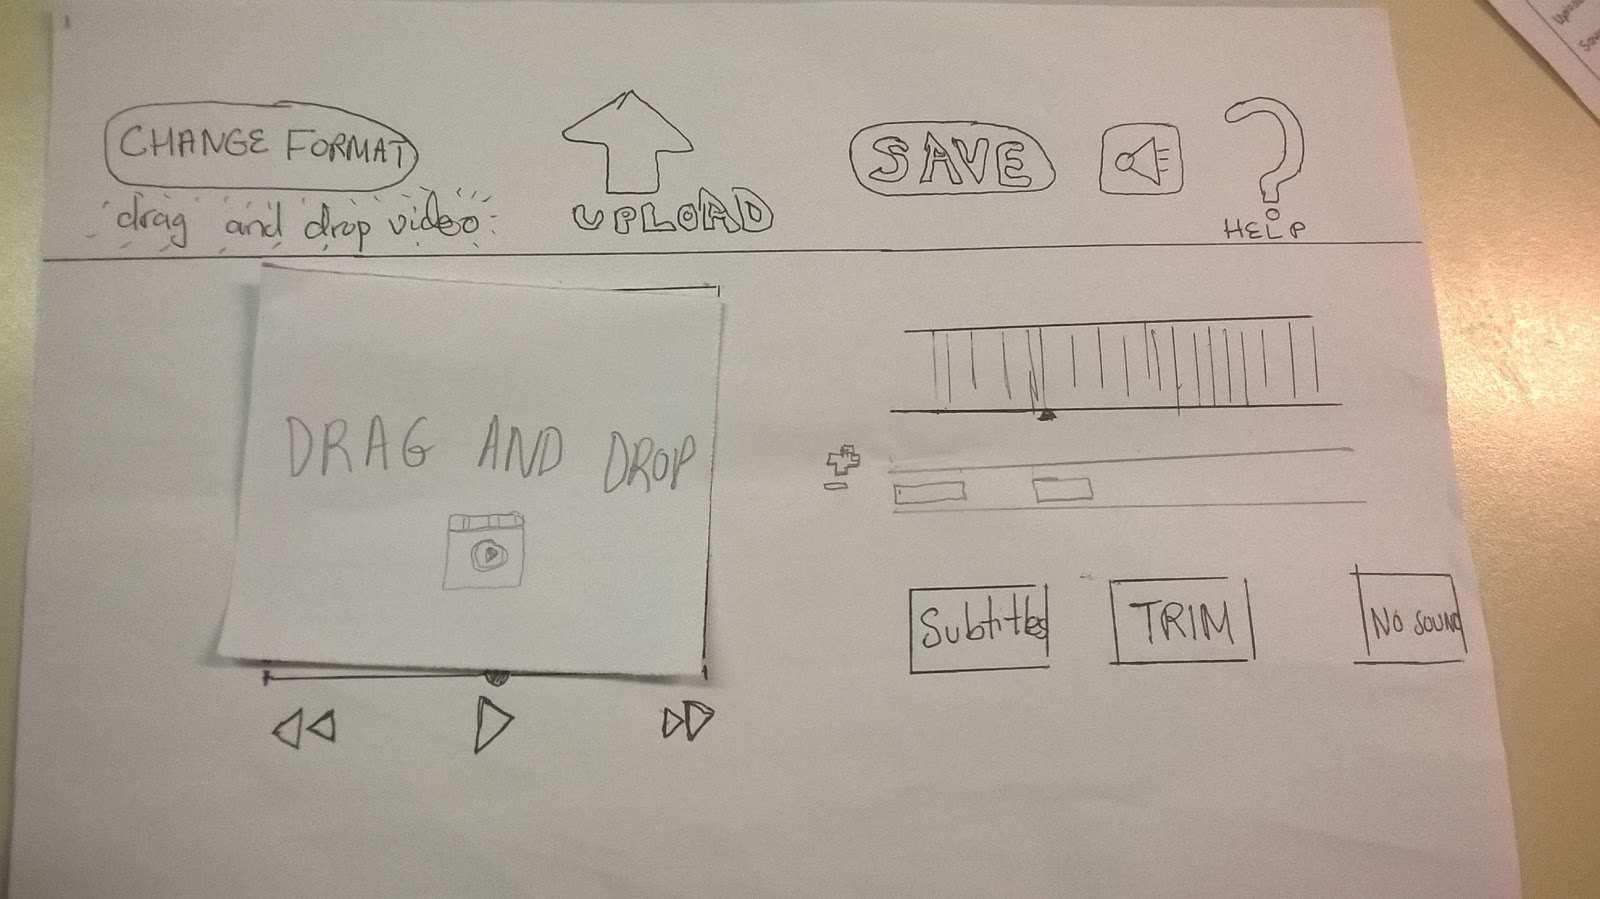 CHANGE FORMAT
drag and drop video
UPLOAD
SAVE
HELP
DRAG AND DROP
Subtitles
TRIM
NO SOUND